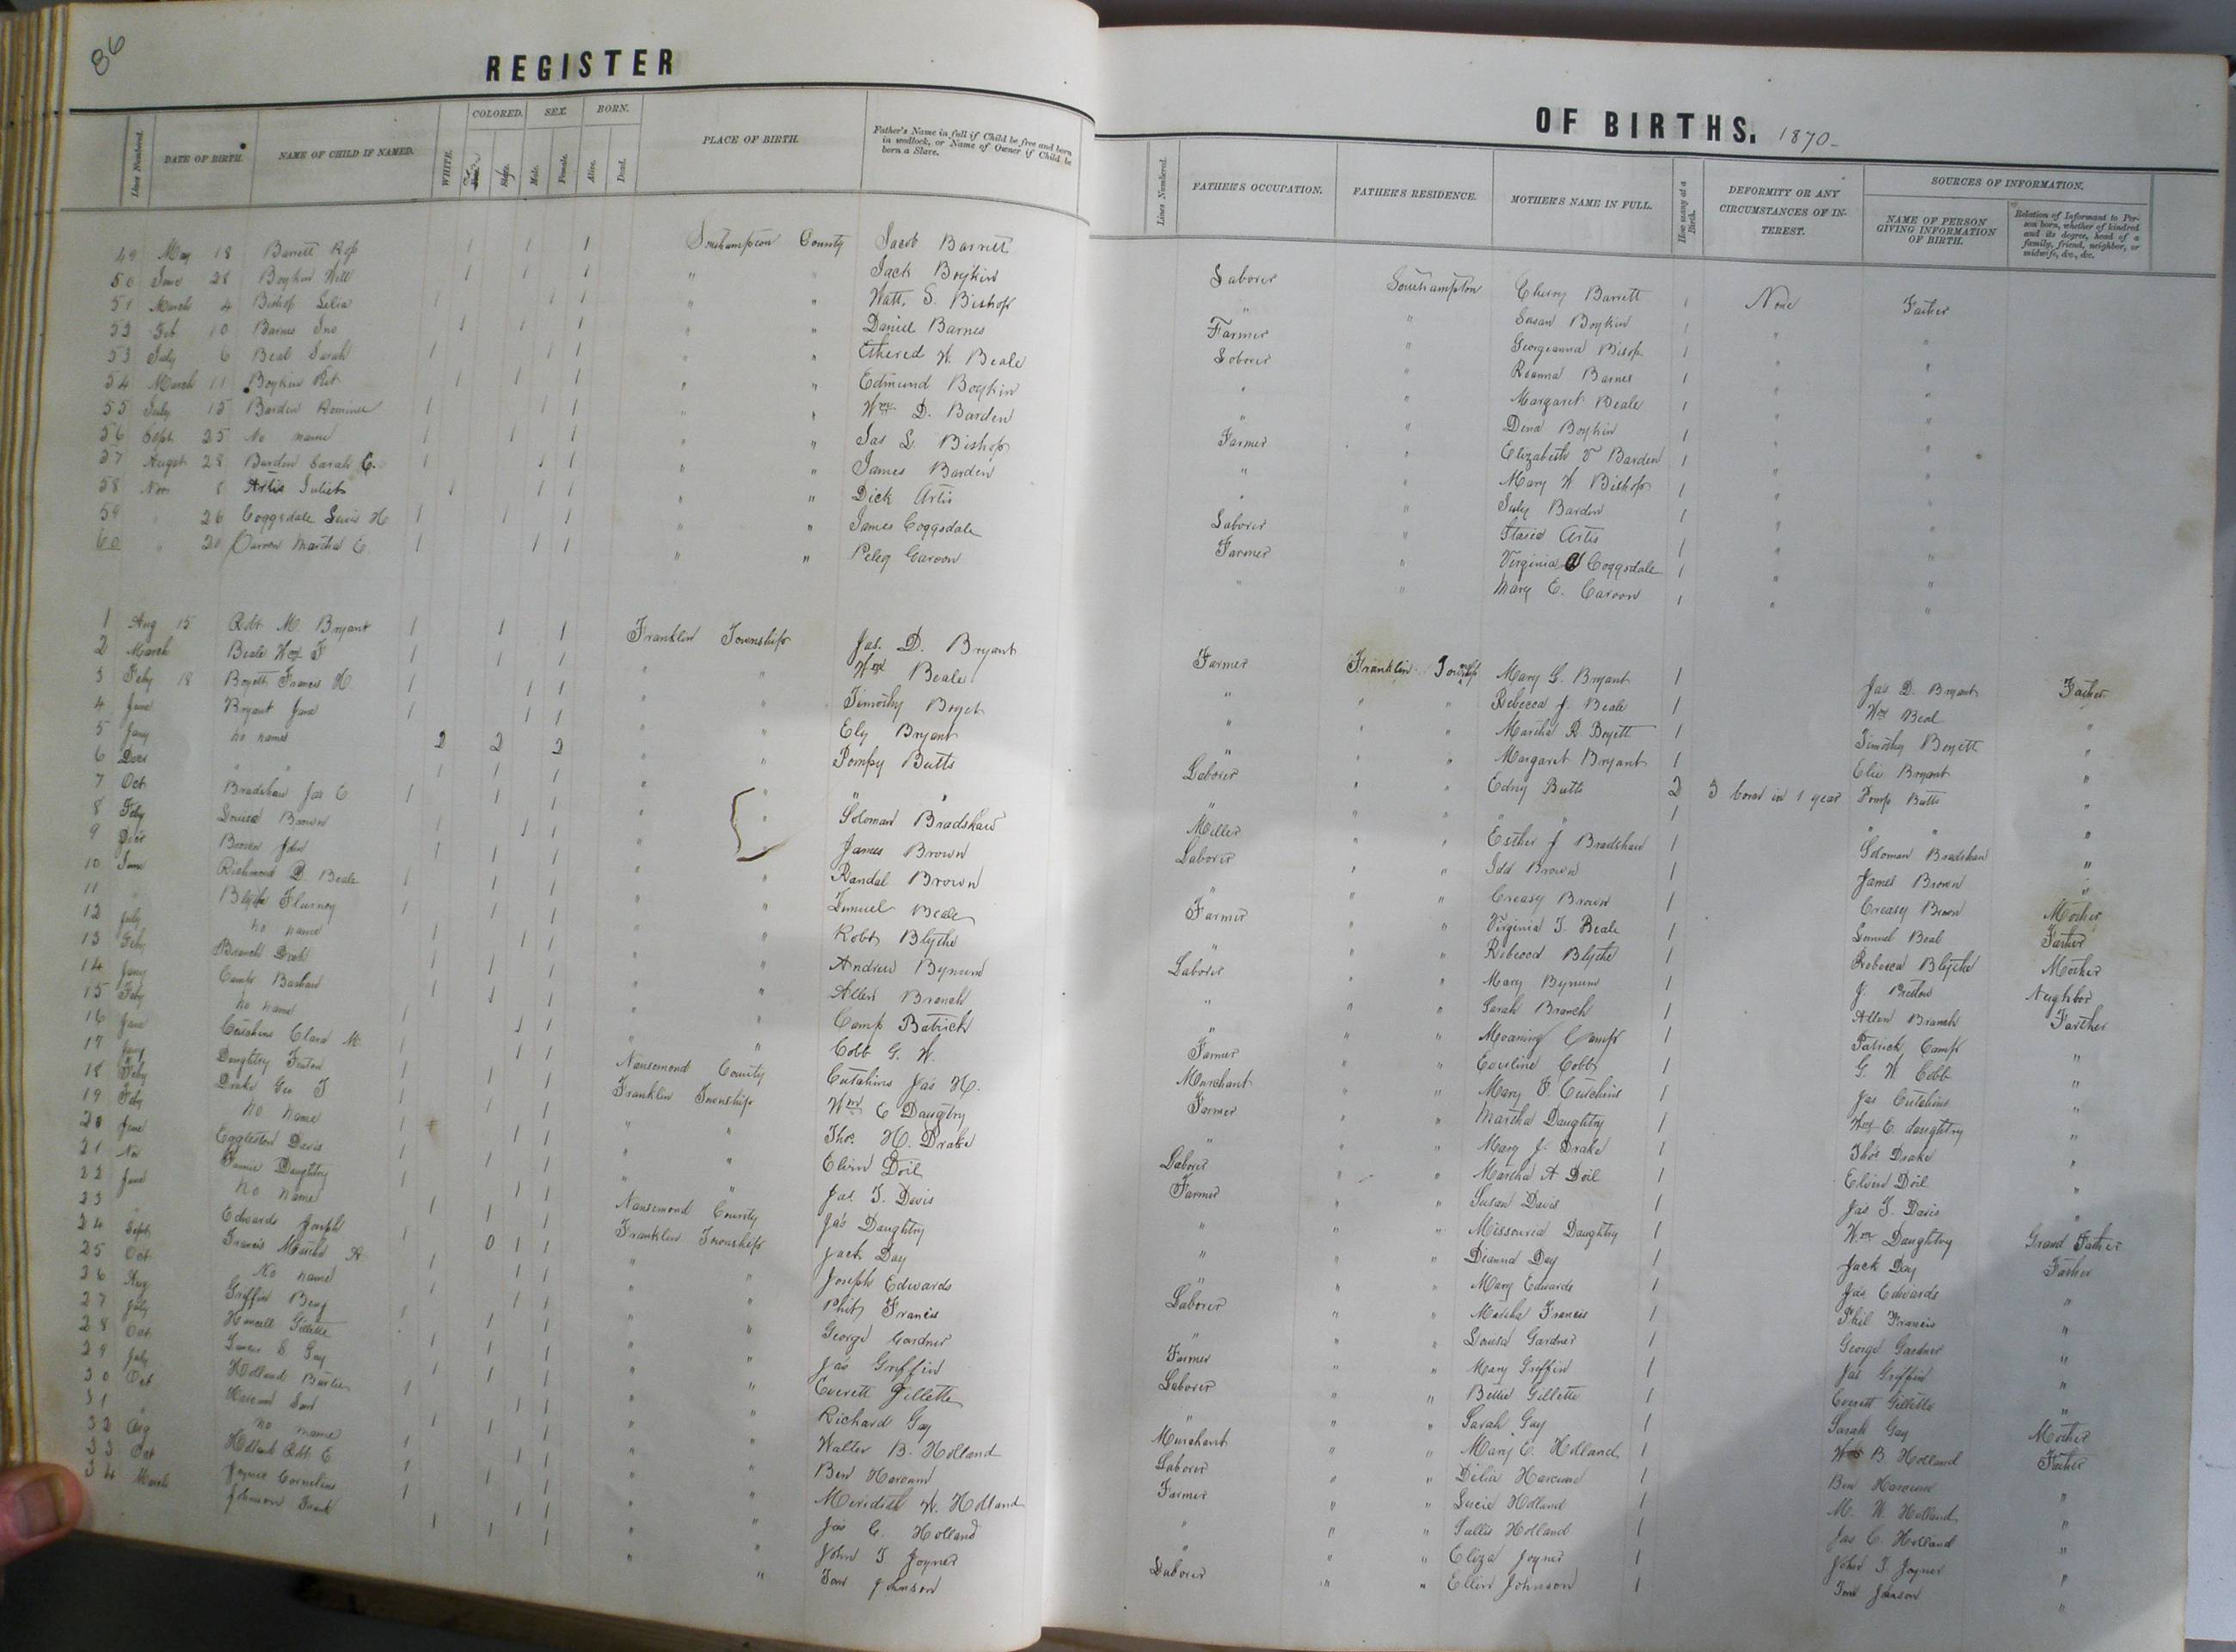 86
REGISTER
Lines Numbered. DATE OF BIRTH. NAME OF CHILD IF NAMED. WHITE. COLORED. SEX. Male. Female. BORN. Alive. Dead. PLACE OF BIRTH. Father's Name in full if Child be free and born in wedlock, or Name of Owner if Child be born a Slave.
49 May 18 Barrett 1 1 1 Southampton County Jacob Barrett
50 June 28 Boykin Will 1 1 1 " " Jack Boykin
51 March 4 Bishop Lelia 1 1 1 " " Watt. S. Bishop
52 Feb 10 Barnes Jno 1 1 1 " " Daniel Barnes
53 July 6 Beal Sarah 1 1 1 " " Ethered W. Beale
54 March 11 Boykin 1 1 1 " " Edmund Boykin
55 July 15 Barden 1 1 1 " " Wm D. Barden
56 Sept 25 No name 1 1 1 " " Jas L. Bishop
57 August 28 Barden Sarah C. 1 1 1 " " James Barden
58 Nov 8 Artis Juliet 1 1 1 " " Dick Artis
59 " 26 Coggsdale Lewis H 1 1 1 " " James Coggsdale
60 " 20 Caroon Martha E. 1 1 1 " " Peleg Caroon
1 Aug 15 Robt M. Bryant 1 1 1 Franklin Township Jas. D. Bryant
2 March Beale Wm F 1 1 1 " " Wm Beale
3 Feby 18 Boyett Francis H. 1 1 1 " " Timothy Boyet
4 June Bryant Jane 1 1 1 " " Ely Bryant
5 Jany no names 2 2 2 " " Pompy Butts
6 Decr " " 1 1 1 " " " "
7 Oct Bradshaw Jas C 1 1 1 " " Soloman Bradshaw
8 Feby Louisa Brown 1 1 1 " " James Brown
9 Decr Brown John 1 1 1 " " Randal Brown
10 June Richmond D. Beale 1 1 1 " " Lemuel Beale
11 " Blythe Flurnoy 1 1 1 " " Robt Blythe
12 July no name 1 1 1 " " Andrew Bynum
13 Feby Branch 1 1 1 " " Allen Branch
14 Jany Camp 1 1 1 " " Camp Patrick
15 Feby no name 1 1 1 " " Cobb G. W.
16 June Cutchins Clara M. 1 1 1 Nansemond County Cutchins Jas H.
17 Jany Daughtry 1 1 1 Franklin Township Wm E Daugtry
18 Feby Drake Geo T 1 1 1 " " Thos. H. Drake
19 Feby no name 1 1 1 " " Elvin Doil
20 June Eggleston Davis 1 1 1 " " Jas. T. Davis
21 Nov Fannie Daughtry 1 1 1 Nansemond County Jas Daughtry
22 June no name 1 1 1 Franklin Township Jack Day
23 " Edwards Joseph 1 1 1 " " Joseph Edwards
24 Sept Francis Martha A 1 0 1 1 " " Phil Francis
25 Oct No name 1 1 1 " " George Gardner
26 Aug Griffin Benj 1 1 1 " " Jas Griffin
27 July Gillette 1 1 1 " " Everett Gillette
28 Oct Gay 1 1 1 " " Richard Gay
29 July Holland 1 1 1 " " Walter B. Holland
30 Oct 1 1 1 " " Ben Harcum
31 " no name 1 1 1 " " Merideth W. Holland
32 Aug Holland Robt E 1 1 1 " " Jas C. Holland
33 Oct Joyner Cornelius 1 1 1 " " John T Joyner
34 March Johnson Frank 1 1 1 " " Johnson
OF BIRTHS. 1870-
Lines Numbered. FATHER'S OCCUPATION. FATHER'S RESIDENCE. MOTHER'S NAME IN FULL. How many at a Birth. DEFORMITY OR ANY CIRCUMSTANCES OF INTEREST. SOURCES OF INFORMATION. NAME OF PERSON GIVING INFORMATION OF BIRTH. Relation of Informant to Person born, whether of kindred and its degree, head of a family, friend, neighbor, or midwife, &c., &c.
Laborer Southampton Cherry Barrett 1 None Father
" " Susan Boykin 1 " "
Farmer " Georgeanna Bishop 1 " "
Laborer " Roanna Barnes 1 " "
" " Margaret Beale 1 " "
" " Dena Boykin 1 " "
Farmer " Elizabeth V Barden 1 " "
" " Mary W Bishop 1 " "
" " July Barden 1 " "
Laborer " Artis 1 " "
Farmer " Virginia A Coggsdale 1 " "
" " Mary E. Caroon 1 " "
Farmer Franklin Township Mary G. Bryant 1 Jas D. Bryant Father
" " " Rebecca J. Beale 1 Wm Beal "
" " " Martha R Boyett 1 Timothy Boyett "
" " " Margaret Bryant 1 Elie Bryant "
Laborer " " Edny Butts 2 3 born in 1 year Pomp Butts "
" " " " 1 " " "
Miller " " Esther J Bradshaw 1 Soloman Bradshaw "
Laborer " " Brown 1 James Brown "
" " " Creasy Brown 1 Creasy Brown Mother
Farmer " " Virginia T. Beale 1 Lemuel Beal Father
" " " Rebecca Blythe 1 Rebecca Blythe Mother
Laborer " " Mary Bynum 1 J. Neighbor
" " " Sarah Branch 1 Allen Branch Farther
" " " Moaning Camp 1 Patrick Camp "
Farmer " " Eveline Cobb 1 G. W. Cobb "
Merchant " " Mary F. Cutchins 1 Jas Cutchins "
Farmer " " Martha Daughtry 1 Wm E. daughtry "
" " " Mary J. Drake 1 Thos Drake "
Laborer " " Martha A Doil 1 Elvin Doil "
Farmer " " Susan Davis 1 Jas T. Davis "
" " " Missouria Daughtry 1 Wm Daughtry Grand Father
" " " Day 1 Jack Day Father
" " " Mary Edwards 1 Jas Edwards "
Laborer " " Martha Francis 1 Phil Francis "
" " " Louisa Gardner 1 George Gardner "
Farmer " " Mary Griffin 1 Jas Griffin "
Laborer " " Bettie Gillette 1 Everett Gillette "
" " " Sarah Gay 1 Sarah Gay Mother
Merchant " " Mary C. Holland 1 B. Holland Father
Laborer " " Delia Harcum 1 Ben Harcum "
Farmer " " Lucie Holland 1 M. W. Holland "
" " " Sallie Holland 1 Jas C. Holland "
" " " Eliza Joyner 1 John T. Joyner "
Laborer " " Ellen Johnson 1 Johnson "